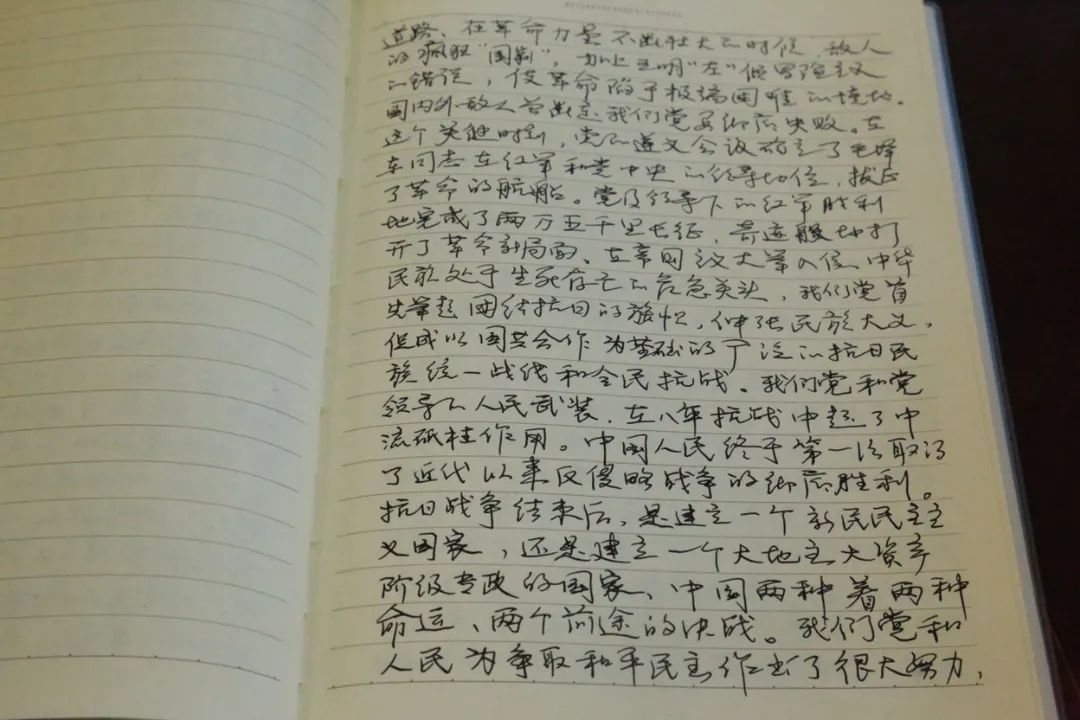 道路、在革命力量不断壮大的时候,敌人
的疯狂“围剿”,加上王明“左”倾冒险主义
的错误,使革命陷于极端困难的境地。
国内外敌人曾断定我们党要彻底失败。在
这个关键时刻,党的遵义会议确立了毛泽
东同志在红军和党中央的领导地位,拨正
了革命的航船。党及领导下的红军胜利
地完成了两万五千里长征,奇迹般地打
开了革命新局面。在帝国主义大举入侵,中华
民族处于生死存亡的危急关头,我们党首
先举起团结抗日的旗帜,伸张民族大义,
促成以国共合作为基础的广泛的抗日民
族统一战线和全民抗战。我们党和党
领导的人民武装,在八年抗战中起了中
流砥柱作用。中国人民终于第一次取得
了近代以来反侵略战争的彻底胜利。
抗日战争结束后,是建立一个新民民主主
义国家,还是建立一个大地主大资产
阶级专政的国家、中国两种着两种
命运、两个前途的决战。我们党和
人民为争取和平民主作出了很大努力,